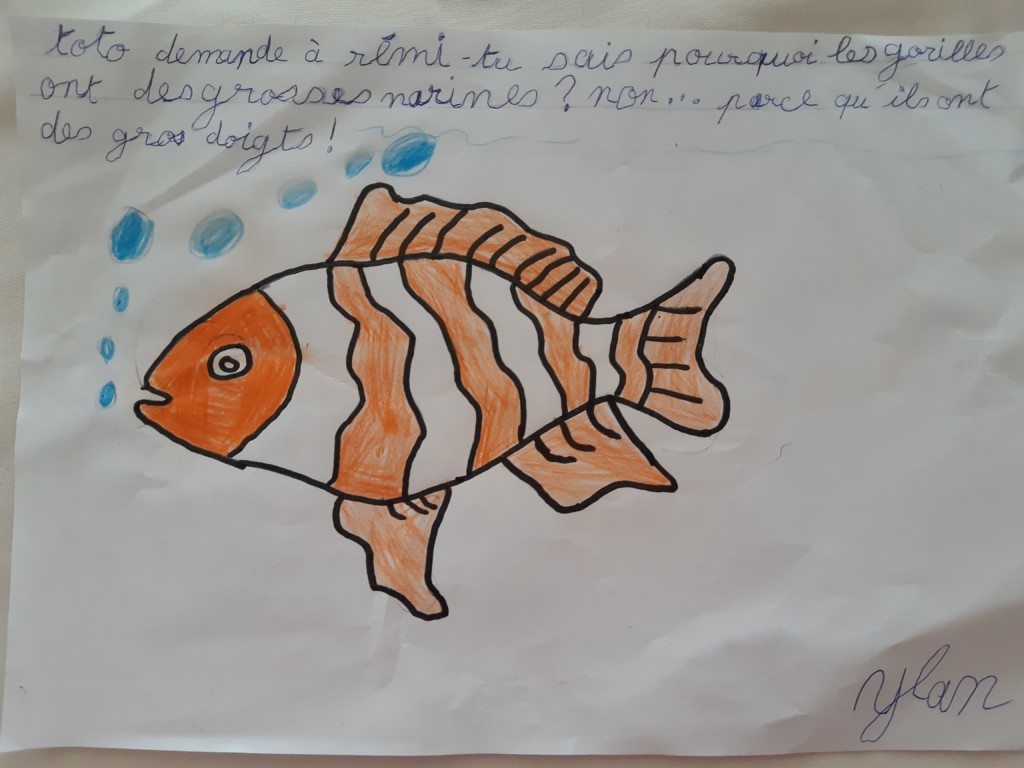 toto demande à rémi-tu sais pourquoi les gorilles
ont des grosses narines ? non... parce qu'ils ont
des gros doigts !
ylan